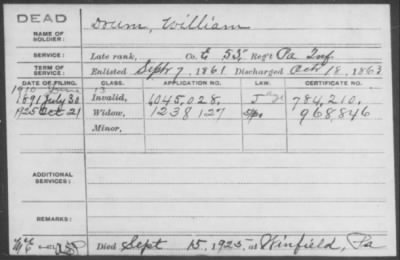 DEAD
NAME OF SOLDIER: Drum, William
SERVICE: Late rank, Co. E 55, Reg't Pa Inf.
TERM OF SERVICE: Enlisted Sept 7, 1861 Discharged Oct 18, 1863
DATE OF FILING. CLASS. APPLICATION NO. LAW. CERTIFICATE NO.
1910 June 13
1891 July 30 Invalid, 1045,028. 784,210.
1925 Oct 21 Widow, 1238127 968,846
Minor,
ADDITIONAL SERVICES:
REMARKS:
Died Sept 15, 1925, at Winfield, Pa